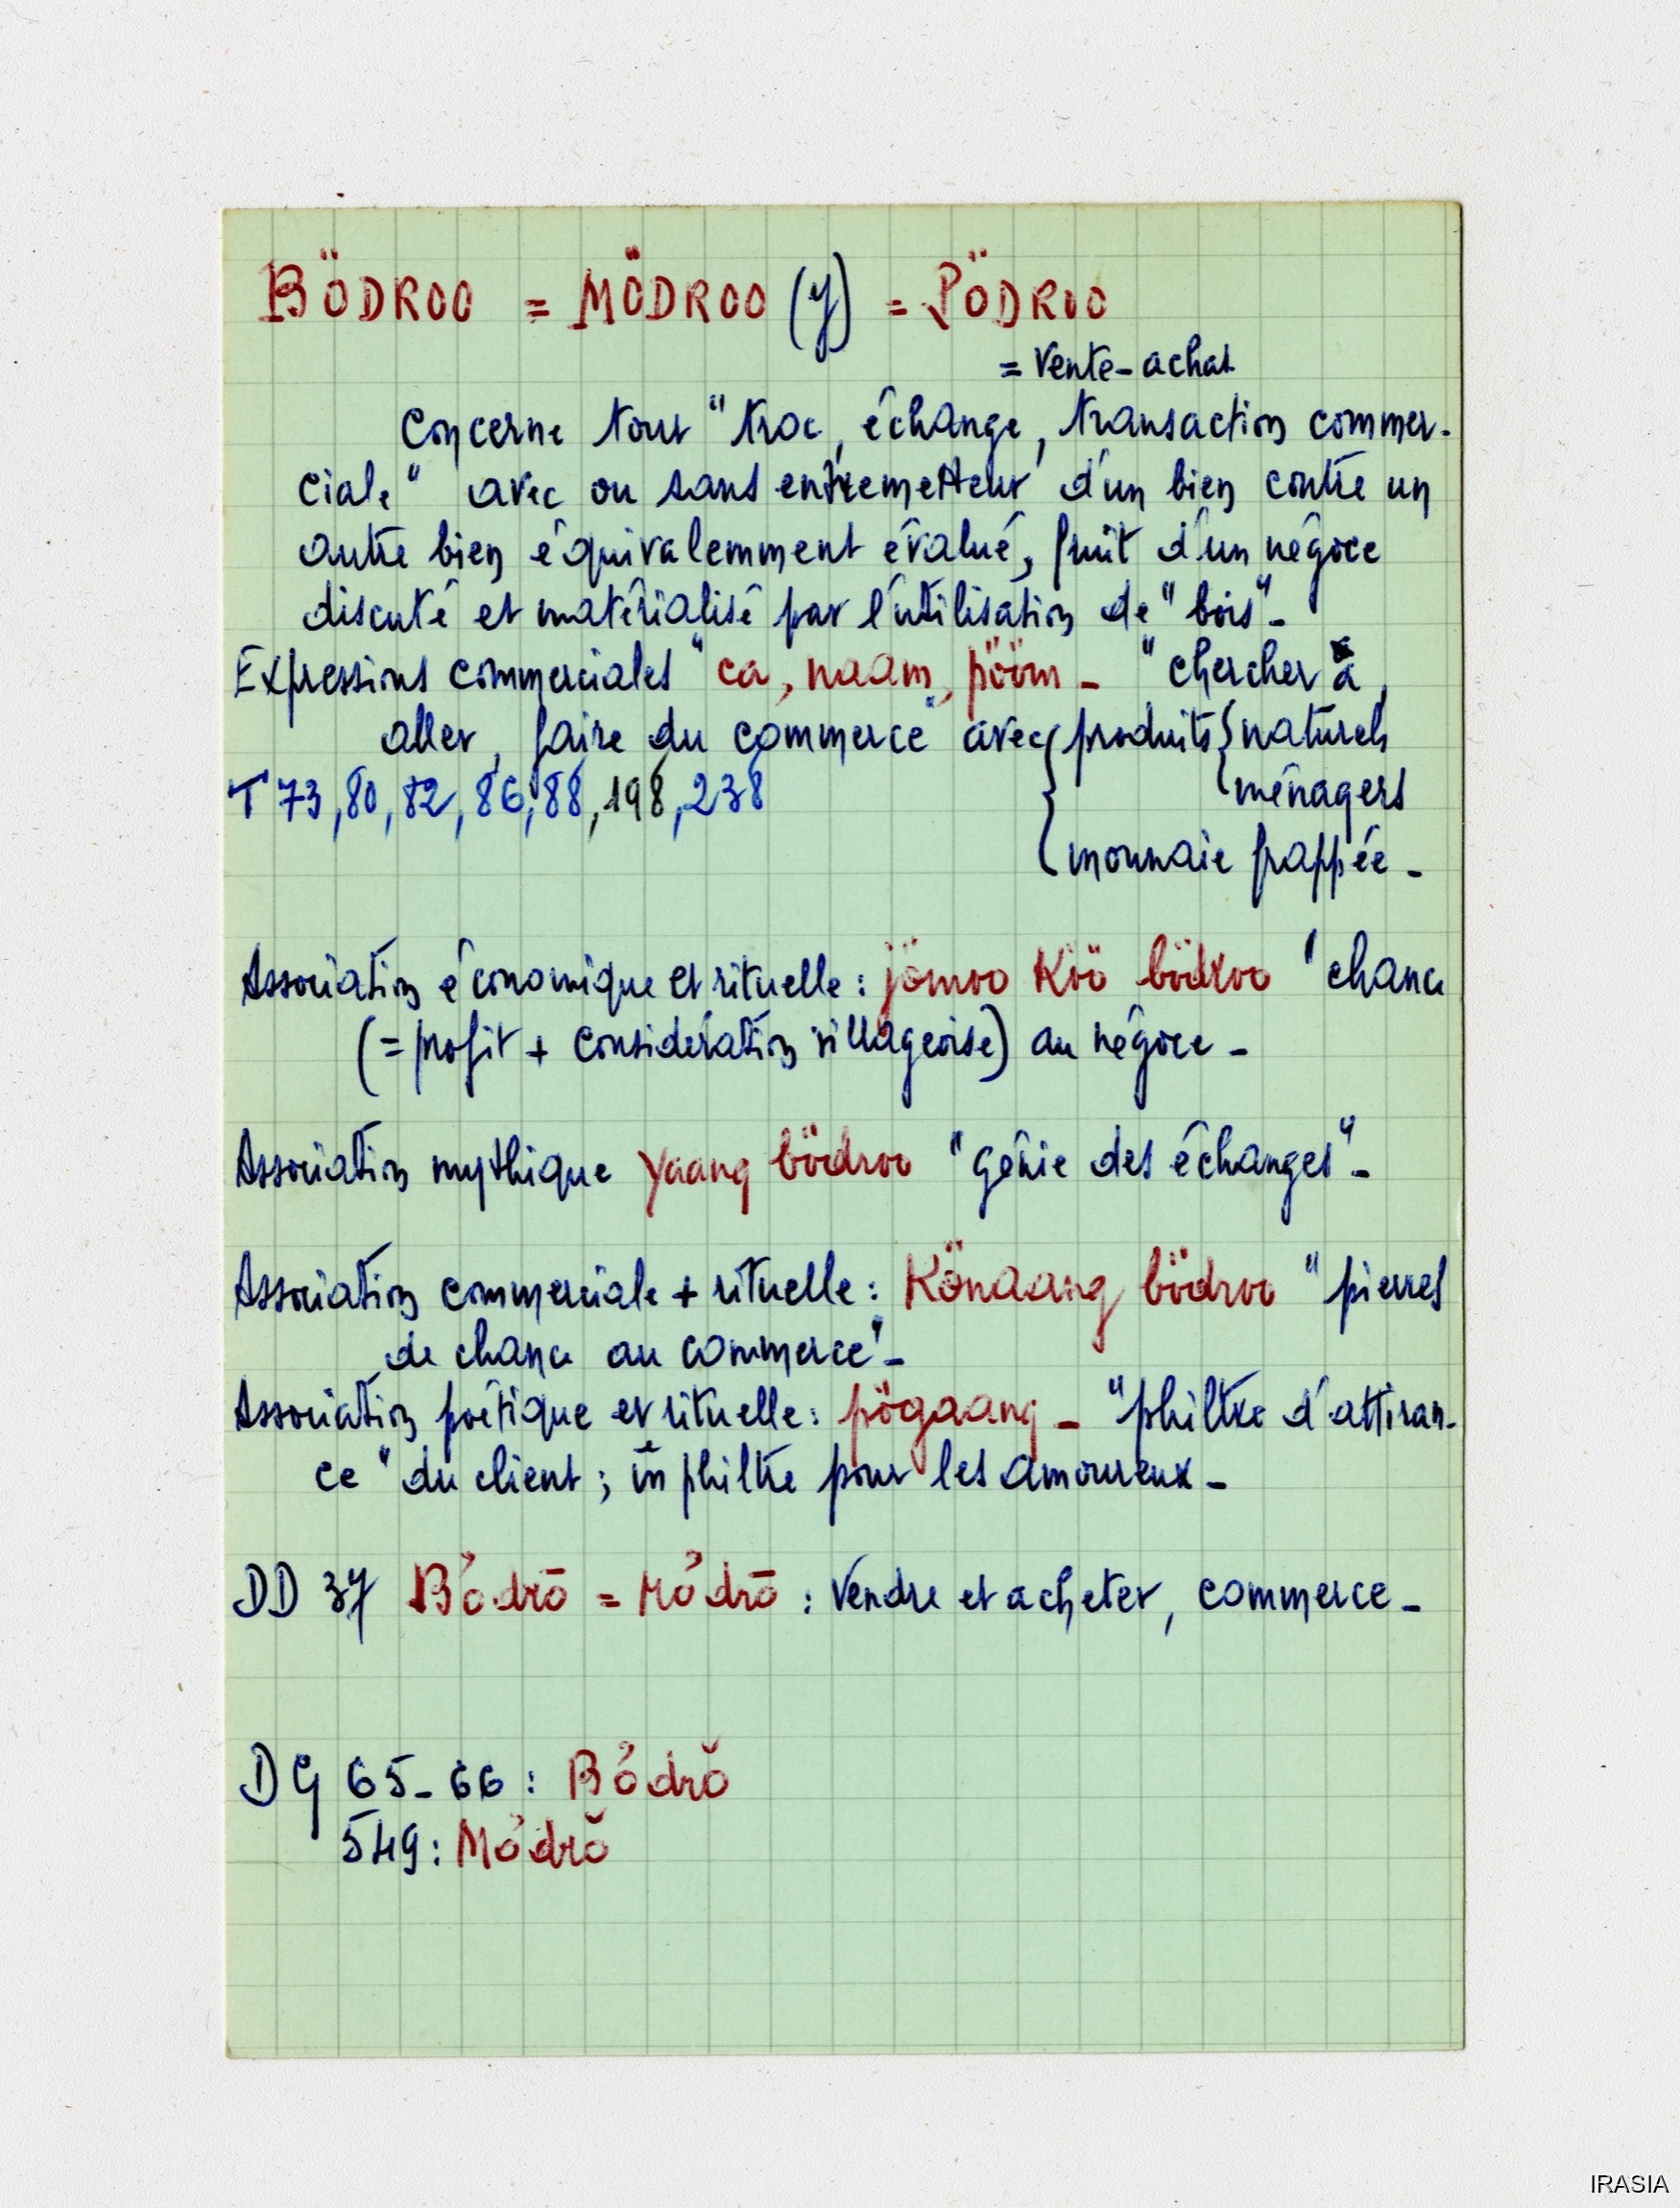 BÖDROO = MÖDROO (y) = PÖDROO
= vente-achat
Concerne tout "troc, échange, transaction commer-
ciale" avec ou sans entremetteur d'un bien contre un
autre bien équivalemment évalué, fruit d'un négoce
discuté et matérialisé par l'utilisation de "bois"-
Expressions commerciales "ca, naam, pööm - "chercher à,
aller, faire du commerce" avec { produits { naturels
T 73, 80, 82, 86, 88, 198, 238 ménagers
monnaie frappée -
Association économique et rituelle : jömoo Köö bödroo "chance
(= profit + considération villageoise) au négoce -
Association mythique yaang bödroo "génie des échanges"-
Association commerciale + rituelle : Könaang bödroo "pierres
de chance au commerce"-
Association poétique et rituelle : pögaang - "philtre d'attiran-
ce" du client ; philtre pour les amoureux -
DD 37 Bơ̆drō = Mơ̆drō : vendre et acheter, commerce -
DG 65-66 : Bơ̆drŏ
549 : Mơ̆drŏ
IRASIA